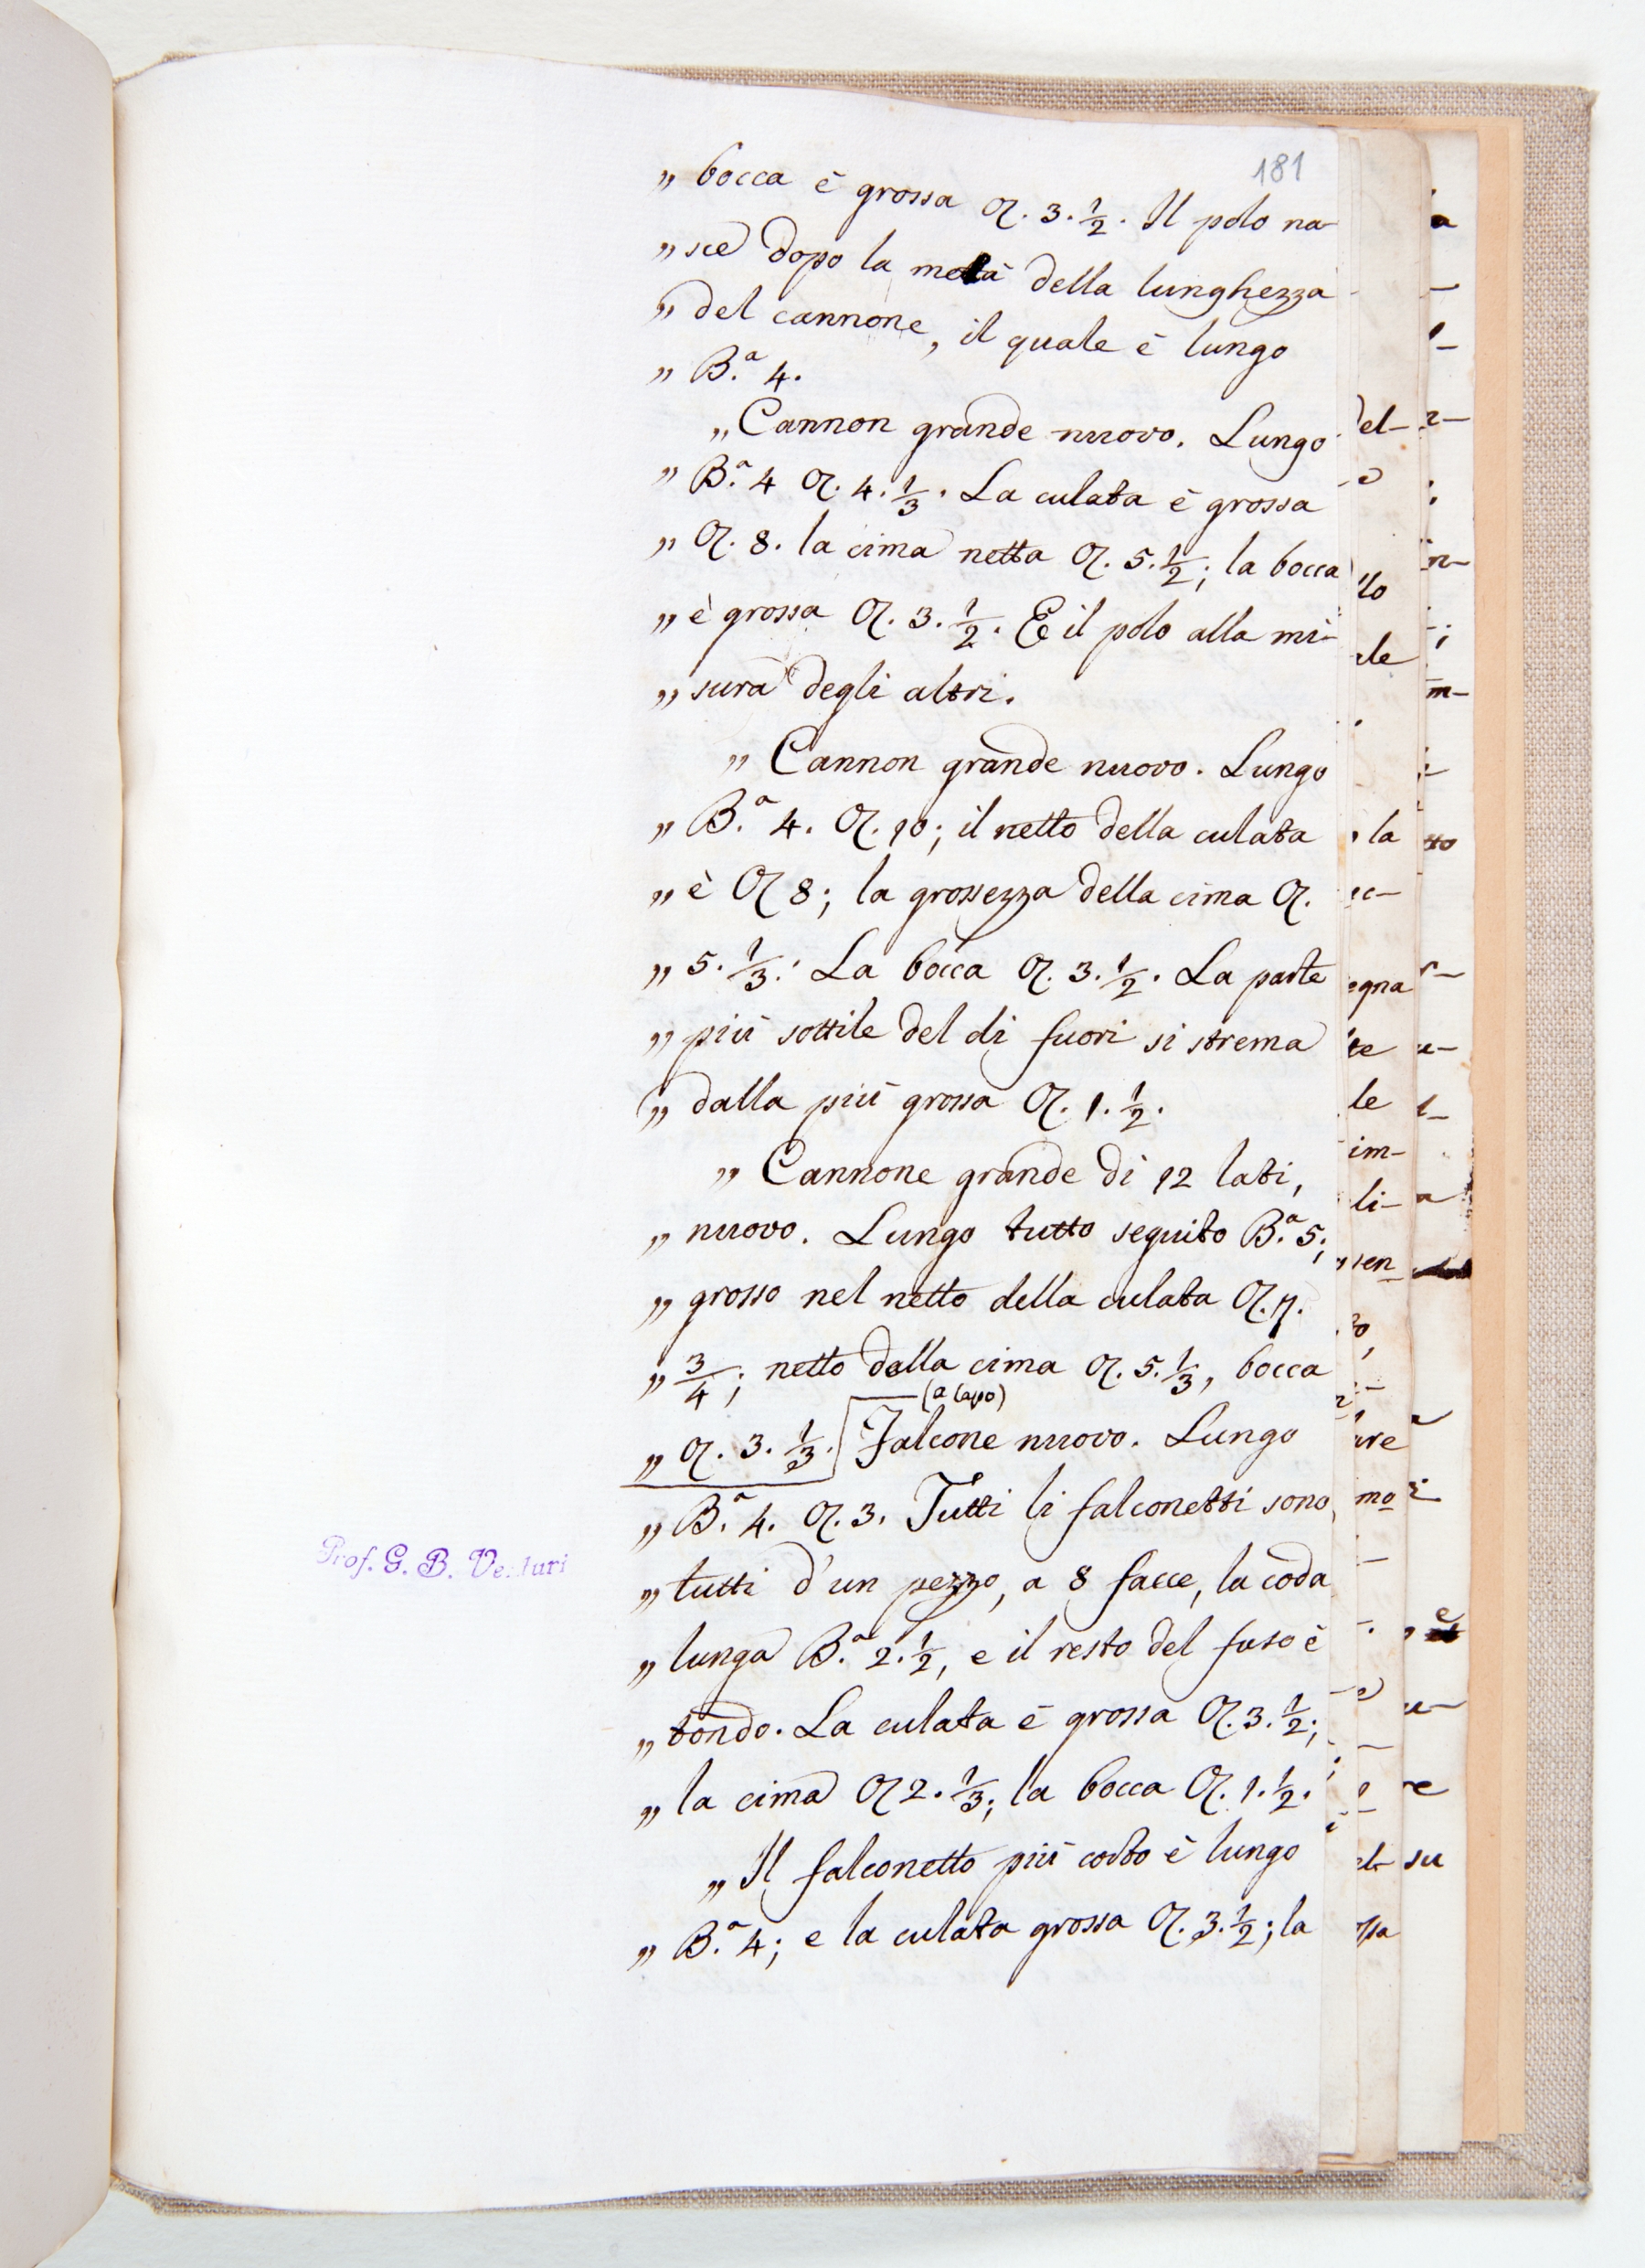 181
„ bocca è grossa O. 3. 1/2. Il polo na-
„ sce dopo la metà della lunghezza
„ del cannone, il quale è lungo
„ B.ª 4.
„ Cannon grande nuovo. Lungo
„ B.ª 4 O. 4. 1/3. La culata è grossa
„ O. 8. la cima netta O. 5. 1/2; la bocca
„ è grossa O. 3. 1/2. E il polo alla mi-
„ sura degli altri.
„ Cannon grande nuovo. Lungo
„ B.ª 4. O. 10; il netto della culata
„ è O 8; la grossezza della cima O.
„ 5. 1/3. La bocca O. 3. 1/2. La parte
„ più sottile del di fuori si strema
„ dalla più grossa O. 1. 1/2.
„ Cannone grande di 12 lati,
„ nuovo. Lungo tutto seguito B.ª 5;
„ grosso nel netto della culata O. 7.
„ 3/4; netto dalla cima O. 5. 1/3, bocca
(a capo)
„ O. 3. 1/3. Falcone nuovo. Lungo
„ B.ª 4. O. 3. Tutti li falconetti sono
„ tutti d'un pezzo, a 8 facce, la coda
„ lunga B.ª 2. 1/2, e il resto del fuso è
„ tondo. La culata è grossa O. 3. 1/2;
„ la cima O 2. 1/3; la bocca O. 1. 1/2.
„ Il falconetto più corto è lungo
„ B.ª 4; e la culata grossa O. 3. 1/2; la
Prof. G. B. Venturi